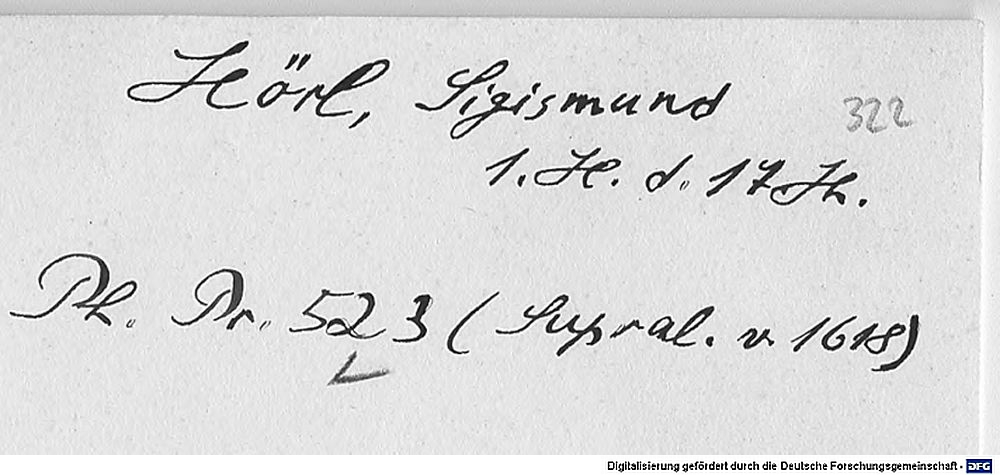 Hörl, Sigismund 322
1. H. d. 17 Jh.
Ph. Pr. 523 (Supral. v. 1618)
Digitalisierung gefördert durch die Deutsche Forschungsgemeinschaft - DFG